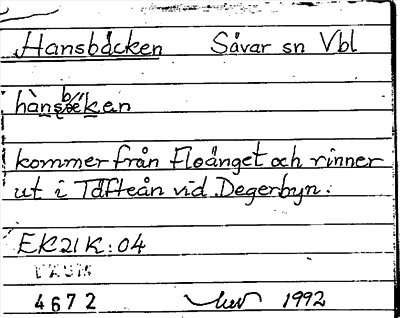 Hansbäcken Sävar sn Vbl
hànsbéken
kommer från Floänget och rinner
ut i Täfteån vid Degerbyn.
EK21K:04
DAUM
4672 1992